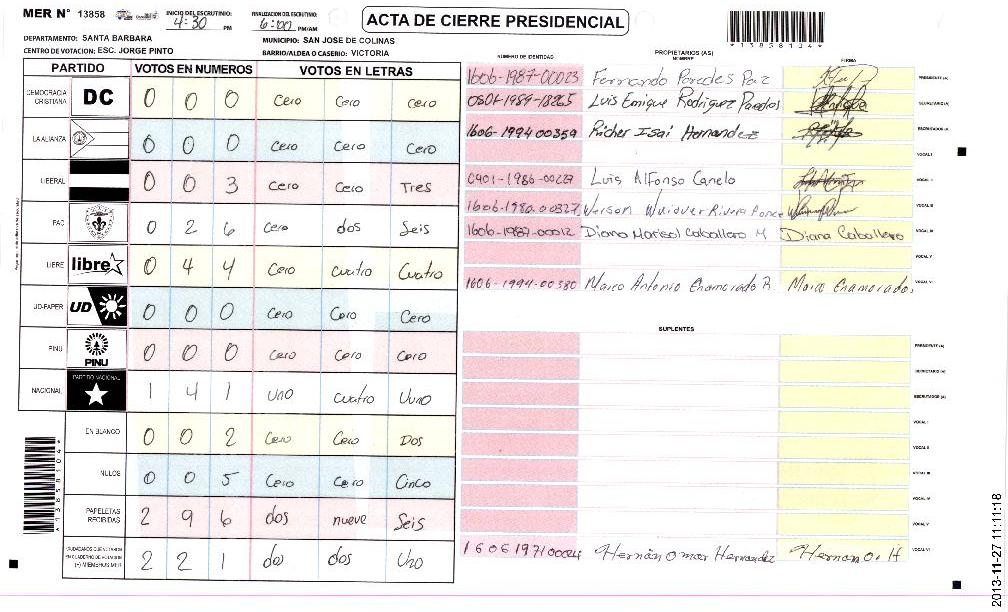 MER N° 13858 INICIO DEL ESCRUTINIO: 4:30 PM FINALIZACION DEL ESCRUTINIO: 6:00 PM/AM
ACTA DE CIERRE PRESIDENCIAL
*13858104*
DEPARTAMENTO: SANTA BARBARA MUNICIPIO: SAN JOSE DE COLINAS
CENTRO DE VOTACION: ESC. JORGE PINTO BARRIO/ALDEA O CASERIO: VICTORIA
PARTIDO VOTOS EN NUMEROS VOTOS EN LETRAS
DEMOCRACIA CRISTIANA DC 0 0 0 Cero Cero Cero
LA ALIANZA 0 0 0 Cero Cero Cero
LIBERAL 0 0 3 Cero Cero Tres
PAC 0 2 6 Cero dos Seis
LIBRE libre 0 4 4 Cero Cuatro Cuatro
UD-FAPER UD 0 0 0 Cero Cero Cero
PINU PINU 0 0 0 Cero Cero Cero
NACIONAL PARTIDO NACIONAL 1 4 1 Uno Cuatro Uno
EN BLANCO 0 0 2 Cero Cero Dos
NULOS 0 0 5 Cero Cero Cinco
PAPELETAS RECIBIDAS 2 9 6 dos nueve Seis
CIUDADANOS QUE VOTARON EN CUADERNO DE VOTACION (+) MIEMBROS MER 2 2 1 dos dos Uno
PROPIETARIOS (AS)
NUMERO DE IDENTIDAD NOMBRE FIRMA
1606-1987-00023 Fernando Paredes Paz PRESIDENTE (A)
0501-1989-18265 Luis Enrique Rodriguez Paredes SECRETARIO (A)
1606-1994 00359 Richer Isai Hernandez ESCRUTADOR (A)
VOCAL I
0401-1986-00227 Luis Alfonso Canelo VOCAL II
1606-1980 00327 Rivera Ponce VOCAL III
1606-1987-00012 Diana Marisol Caballero M Diana Caballero
VOCAL V
1606-1994-00380 Marco Antonio Enamorado R Marco Enamorado
SUPLENTES
PRESIDENTE (A)
SECRETARIO (A)
ESCRUTADOR (A)
VOCAL I
VOCAL II
VOCAL III
VOCAL IV
VOCAL V
1606197100024 Hernán Omar Hernandez Hernan O. H VOCAL VI
*13858104*
2013-11-27 11:11:18